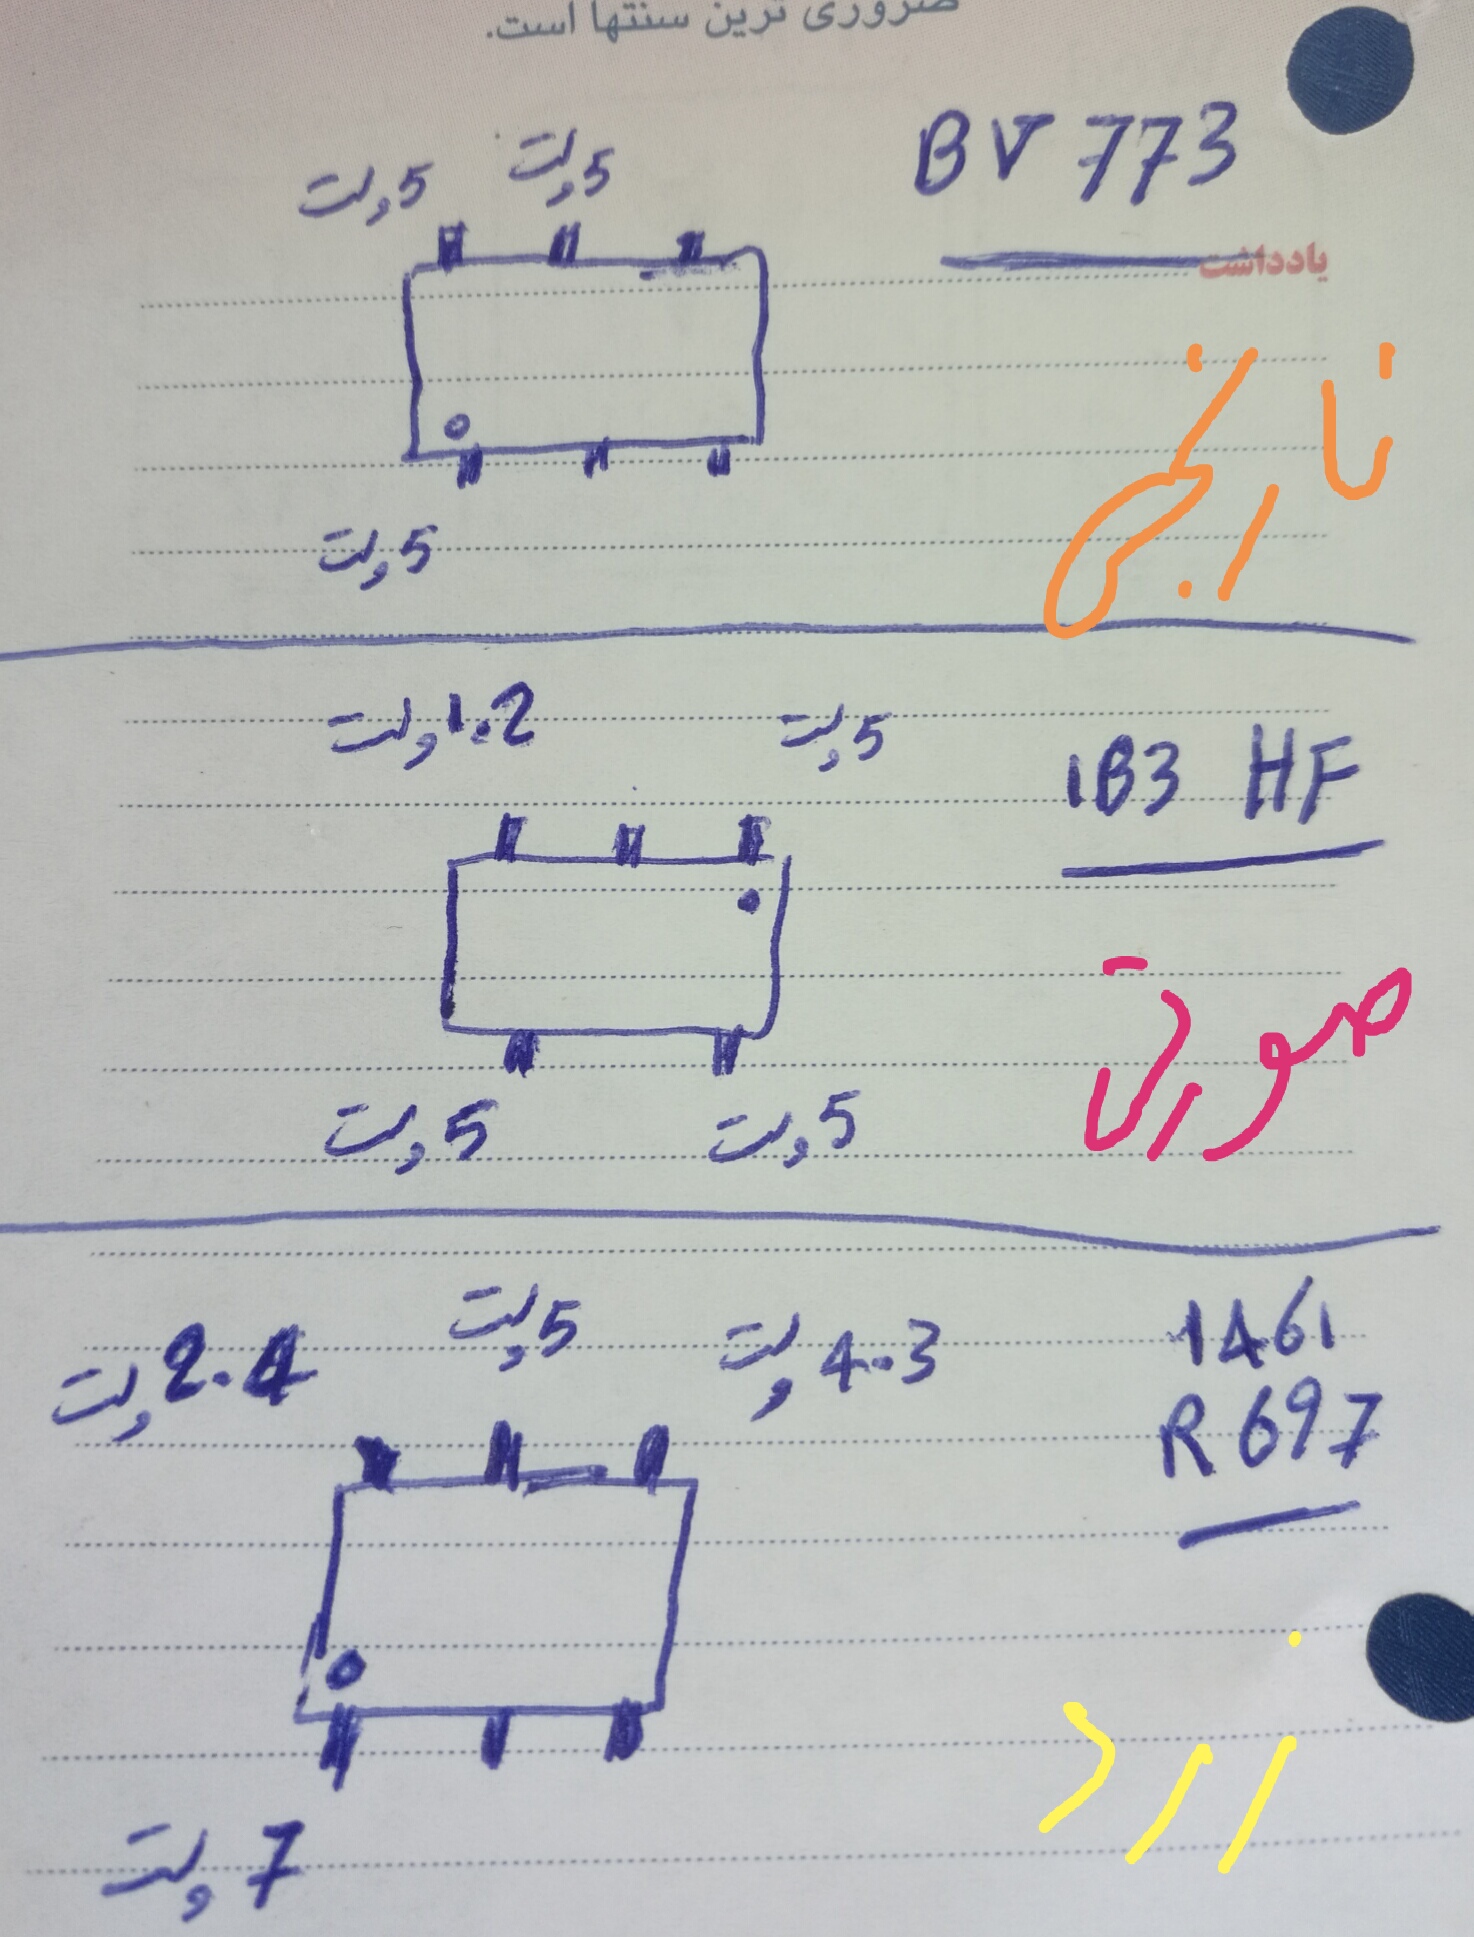 ضروری ترین سنتها است.
BV 773
5 ولت 5 ولت
یادداشت
نارنجی
5 ولت
1.2 ولت 5 ولت
1B3 HF
صورتی
5 ولت 5 ولت
2.4 ولت 5 ولت 4.3 ولت
1461
R697
زرد
7 ولت